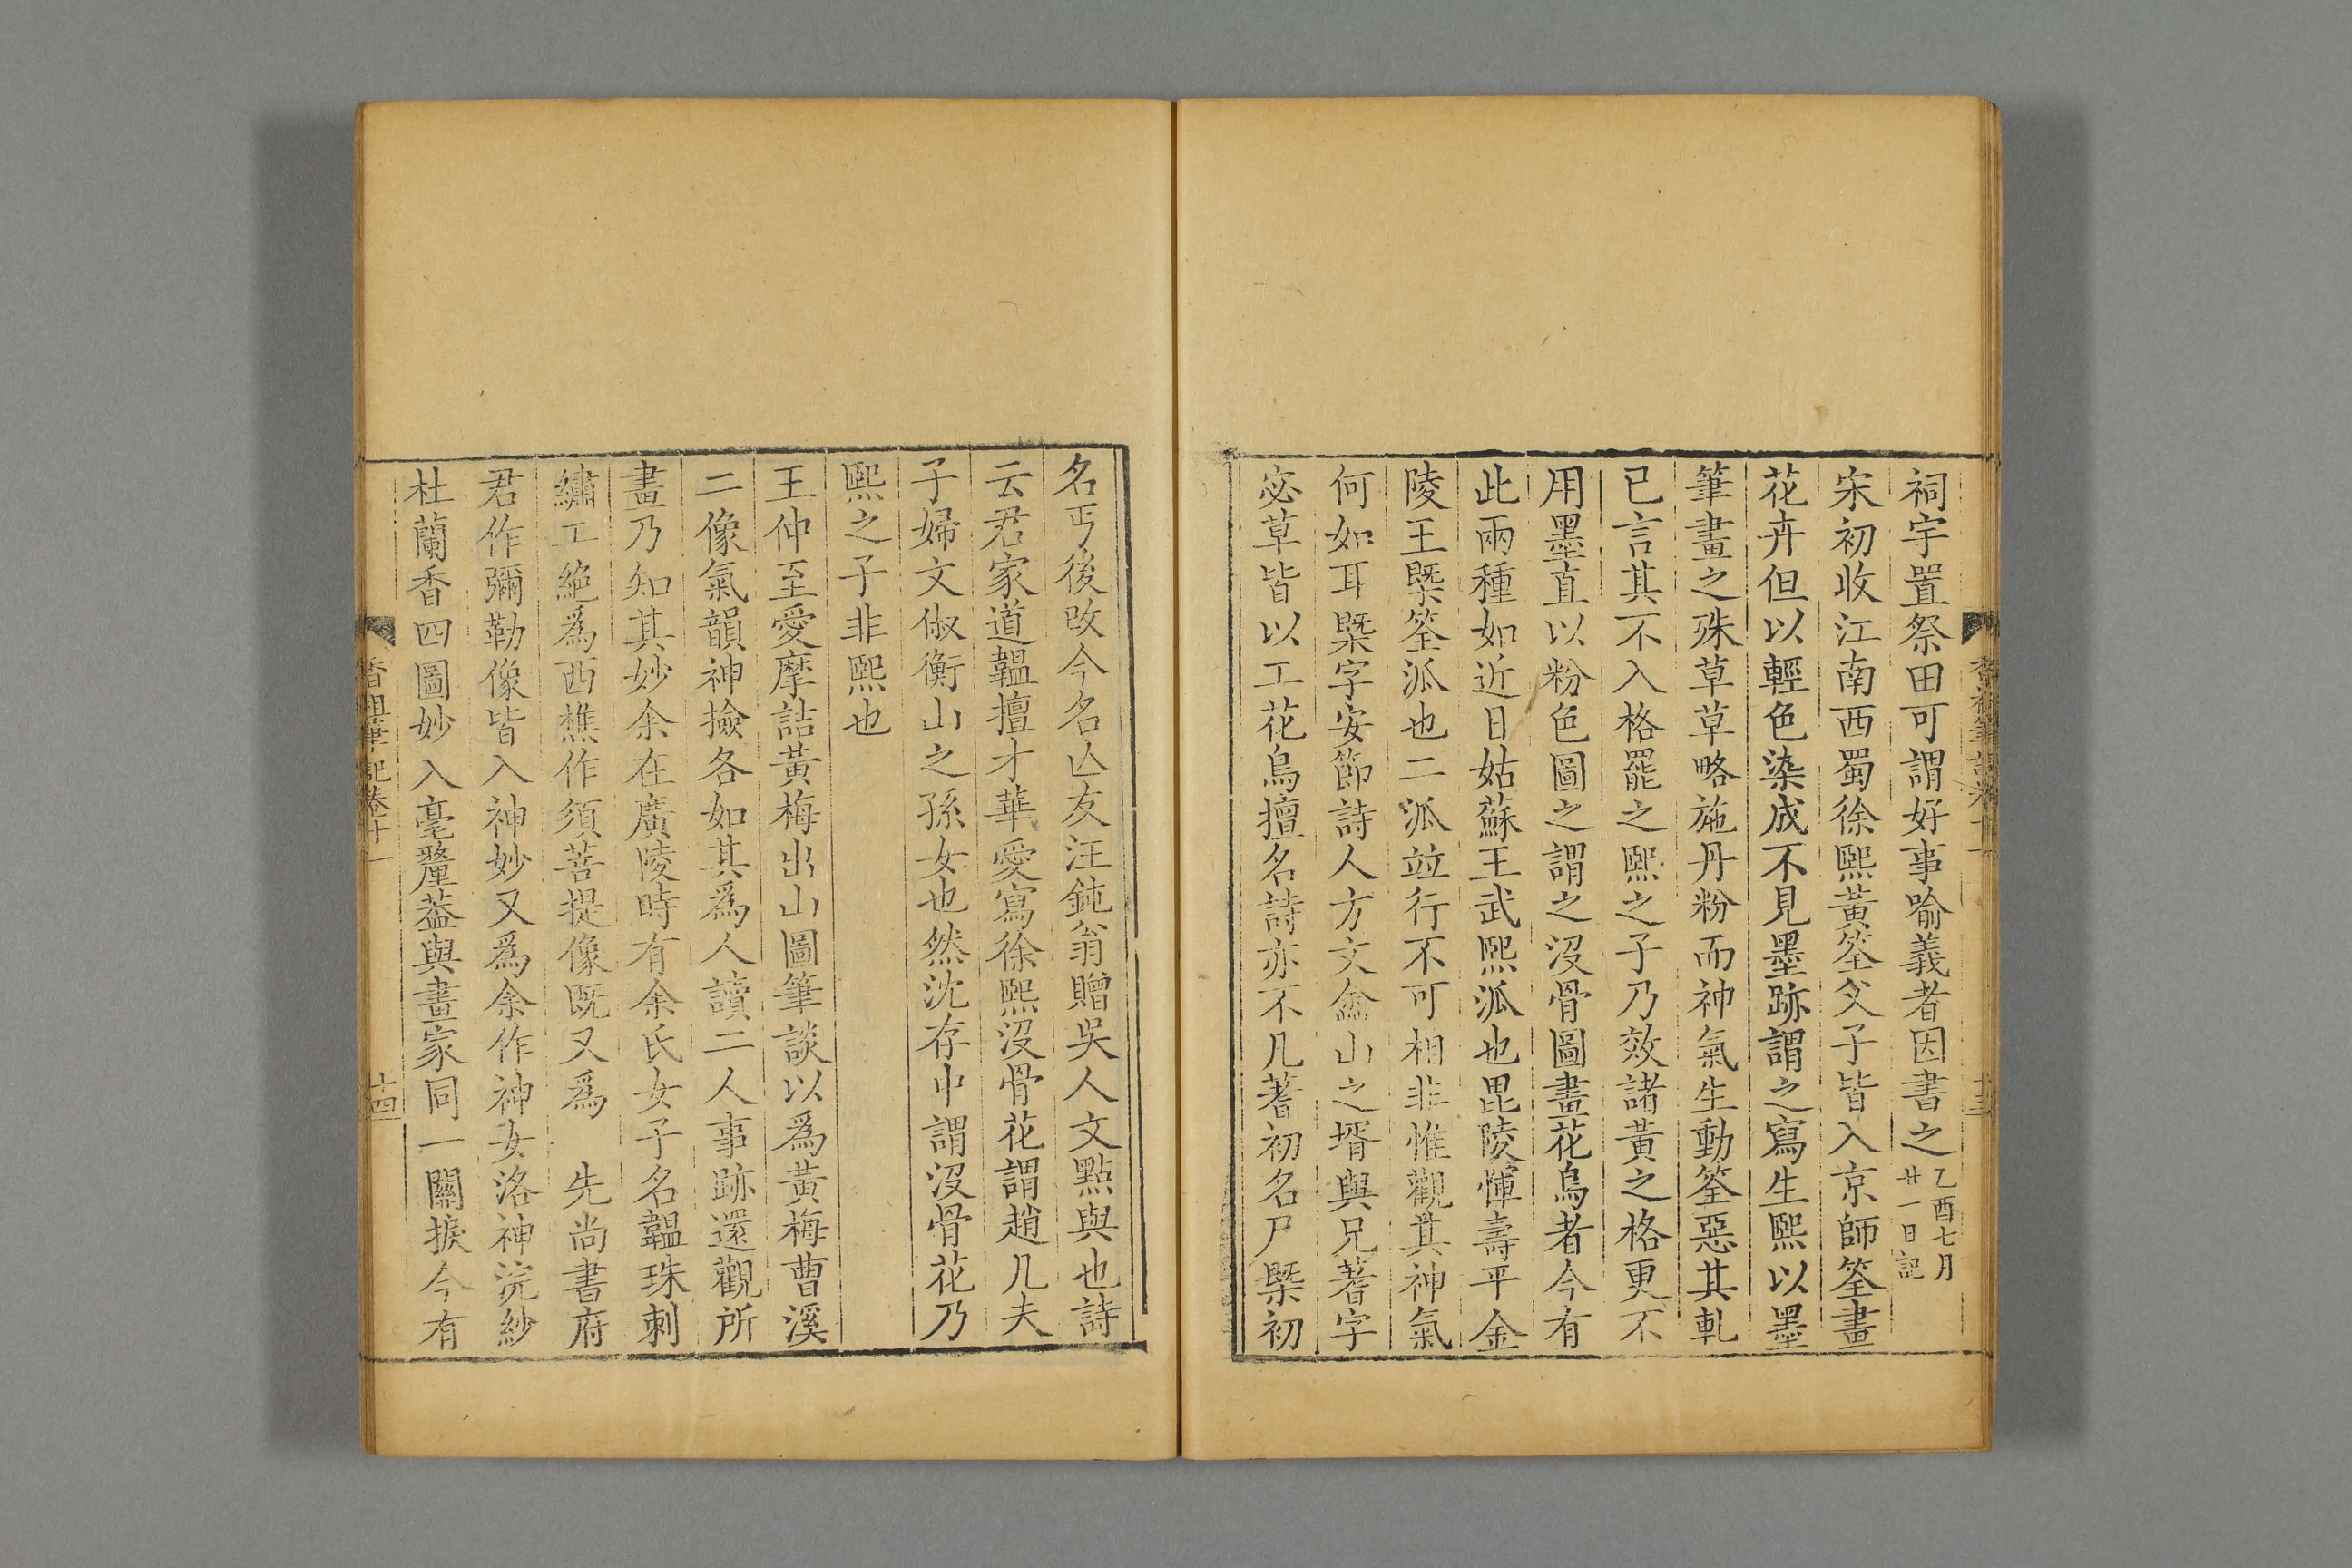 祠宇置祭田可謂好事喻義者因書之乙酉七月廿一日記
宋初收江南西蜀徐熙黃筌父子皆入京師筌畫
花卉但以輕色染成不見墨跡謂之寫生熙以墨
筆畫之殊草草略施丹粉而神氣生動筌惡其軋
已言其不入格罷之熙之子乃效諸黃之格更不
用墨直以粉色圖之謂之沒骨圖畫花鳥者今有
此兩種如近日姑蘇王武熙派也毘陵惲壽平金
陵王槩筌派也二派竝行不可相非惟觀其神氣
何如耳槩字安節詩人方文嵞山之壻與兄蓍字
宓草皆以工花鳥擅名詩亦不凡蓍初名尸槩初
香祖筆記卷十一
十三
名丐後改今名亾友汪鈍翁贈吳人文點與也詩
云君家道韞擅才華愛寫徐熙沒骨花謂趙凡夫
子婦文俶衡山之孫女也然沈存中謂沒骨花乃
熙之子非熙也
王仲至愛摩詰黃梅出山圖筆談以爲黃梅曹溪
二像氣韻神撿各如其爲人讀二人事跡還觀所
畫乃知其妙余在廣陵時有余氏女子名韞珠刺
繡工絕爲西樵作須菩提像既又爲 先尚書府
君作彌勒像皆入神妙又爲余作神女洛神浣紗
杜蘭香四圖妙入毫釐葢與畫家同一關捩今有
香祖筆記卷十一
十四